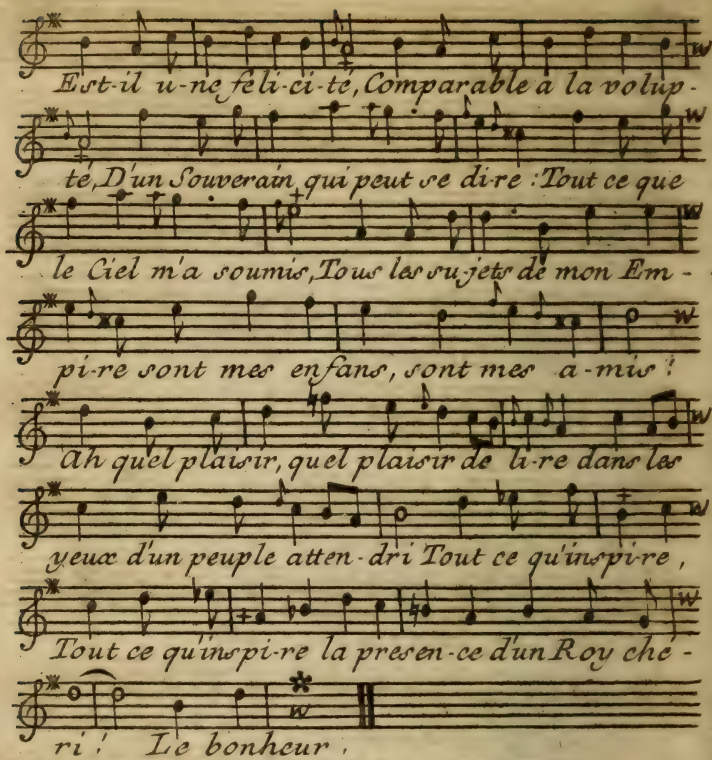 Est-il u-ne feli-ci-té, Comparable à la volup-
té, D'un Souverain qui peut se di-re : Tout ce que
le Ciel m'a soumis, Tous les su-jets de mon Em-
pi-re sont mes enfans, sont mes a-mis !
Ah quel plaisir, quel plaisir de li-re dans les
yeux d'un peuple atten-dri Tout ce qu'inspi-re,
Tout ce qu'inspi-re la presen-ce d'un Roy che-
ri ! Le bonheur.